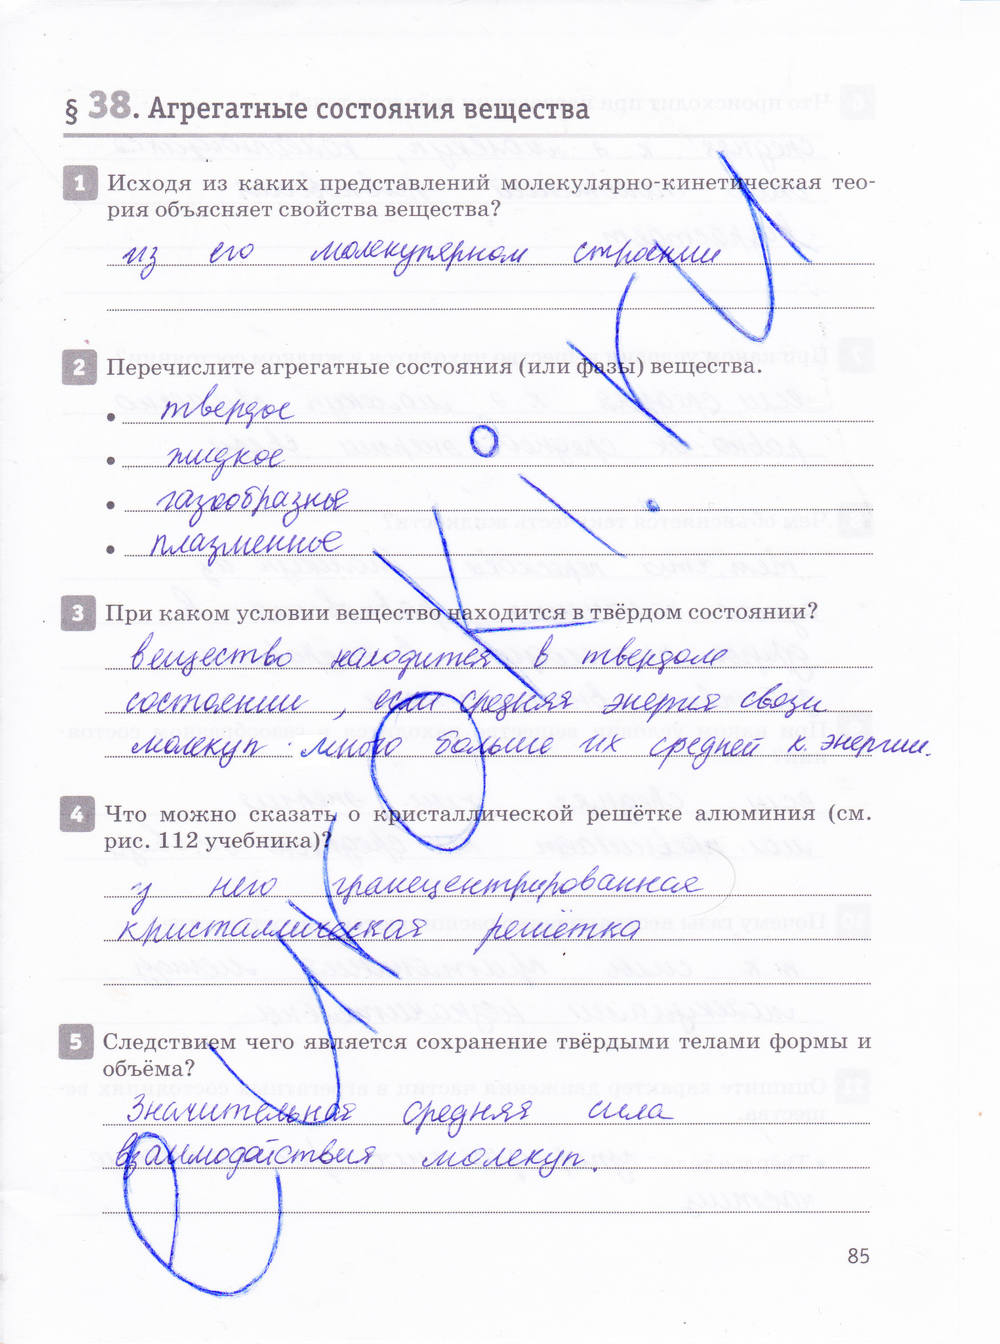 § 38. Агрегатные состояния вещества
1 Исходя из каких представлений молекулярно-кинетическая тео-
рия объясняет свойства вещества?
из его молекулярном строении
2 Перечислите агрегатные состояния (или фазы) вещества.
• твердое
• жидкое
• газообразные
• плазменное
3 При каком условии вещество находится в твёрдом состоянии?
вещество находится в твердом
состоянии, если средняя энергия связи
молекул много больше их средней к. энергии.
4 Что можно сказать о кристаллической решётке алюминия (см.
рис. 112 учебника)?
у него гранецентрированная
кристаллическая решётка
5 Следствием чего является сохранение твёрдыми телами формы и
объёма?
Значительная средняя сила
взаимодействия молекул.
85